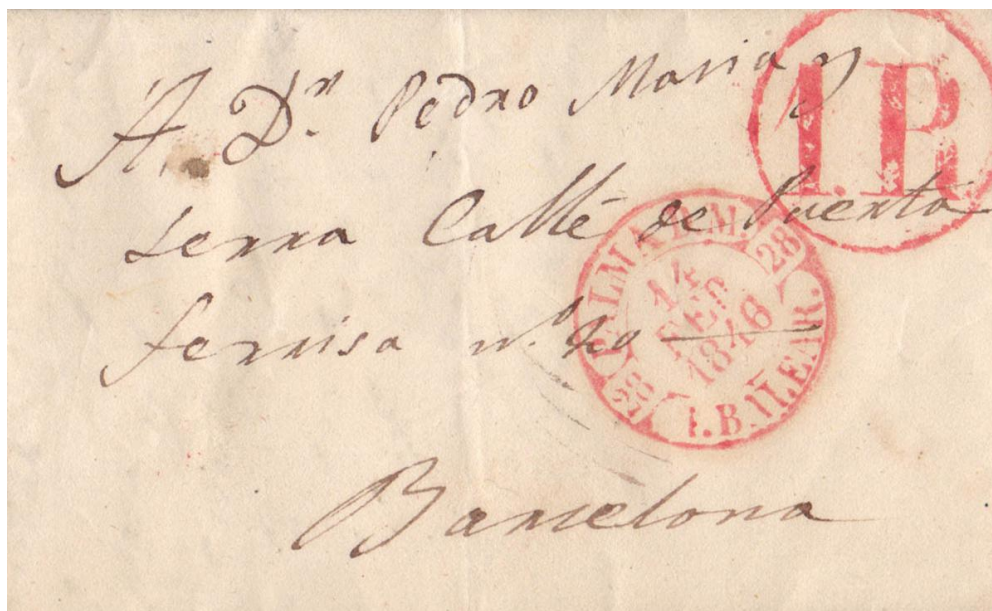 A Dn. Pedro Maria y
Serra Calle de Puerta
ferrisa n.º 20
Barcelona
1.R
PALMA
28
14
FEB
1846
28
I.BALEAR.